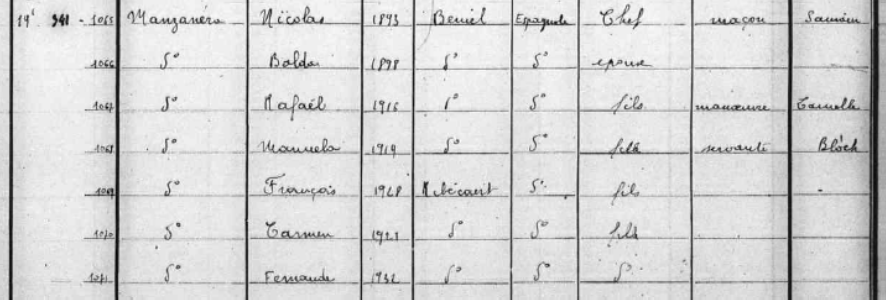 19 341 1065 Manzanéra Nicolas 1893 Beniel Espagnole Chef maçon
1066 d° 1898 d° d° épouse
1067 d° Rafaël 1916 d° d° fils manœuvre
1068 d° Manuela 1919 d° d° fille servante Bloch
1069 d° François 1928 d° fils
1070 d° Carmen d° d° fille
1071 d° Fernande 1932 d° d° d°